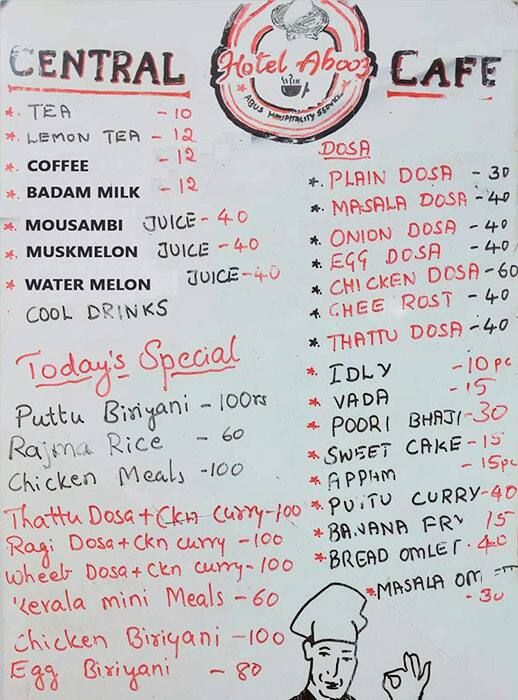 CENTRAL
Hotel Abooz
ABUS HOUSPITALITY SERVICE
CAFE
TEA - 10
LEMON TEA - 12
COFFEE - 12
BADAM MILK - 12
MOUSAMBI JUICE - 40
MUSKMELON JUICE - 40
WATER MELON JUICE - 40
COOL DRINKS
Today's Special
Puttu Biriyani - 100rs
Rajma Rice - 60
Chicken Meals - 100
Thattu Dosa + Ckn Curry - 100
Ragi Dosa + Ckn curry - 100
Wheet Dosa + Ckn curry - 100
Kerala mini Meals - 60
Chicken Biriyani - 100
Egg Biriyani - 80
DOSA
PLAIN DOSA - 30
MASALA DOSA - 40
ONION DOSA - 40
EGG DOSA - 40
CHICKEN DOSA - 60
GHEE ROST - 40
THATTU DOSA - 40
IDLY - 10 pc
VADA - 15
POORI BHAJI - 30
SWEET CAKE - 15
APPHM - 15pc
PUTTU CURRY - 40
BANANA FRY 15
BREAD OMLET - 40
MASALA - 30